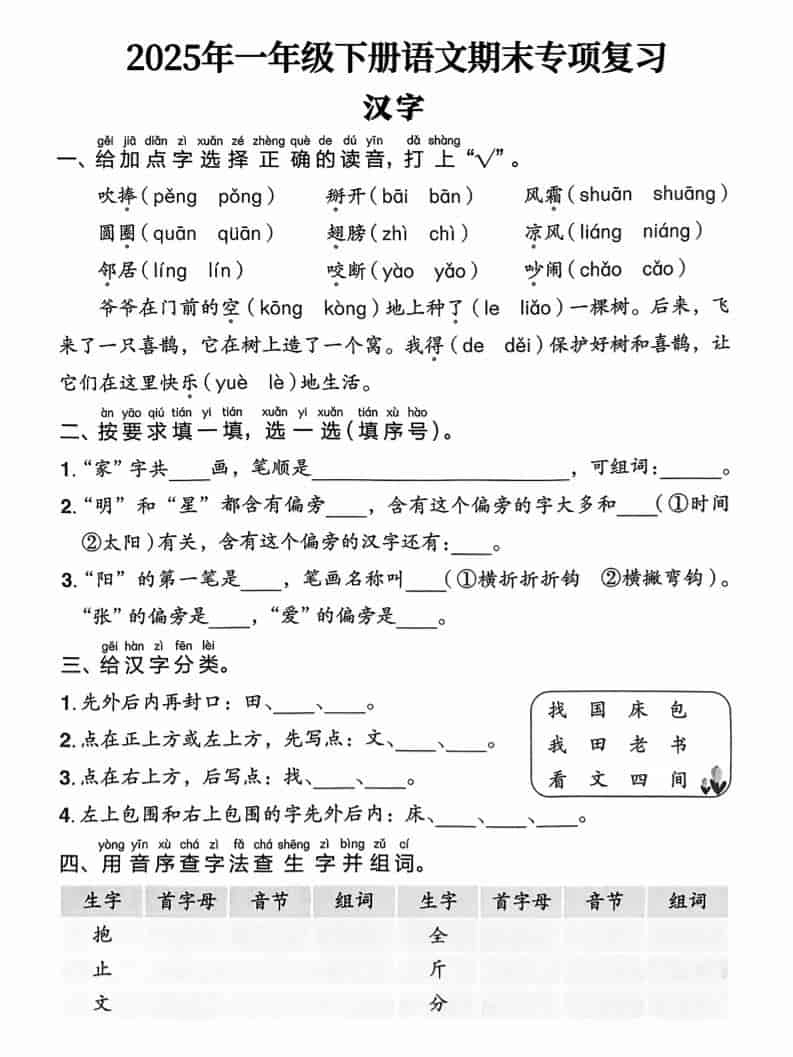 2025年一年级下册语文期末专项复习
汉字
gěi jiā diǎn zì xuǎn zé zhèng què de dú yīn dǎ shàng
一、给加点字选择正确的读音，打上“√”。
吹捧（pěng pǒng） 掰开（bāi bān） 风霜（shuān shuāng）
圆圈（quān qüān） 翅膀（zhì chì） 凉风（liáng niáng）
邻居（líng lín） 咬断（yào yǎo） 吵闹（chǎo cǎo）
爷爷在门前的空（kōng kòng）地上种了（le liǎo）一棵树。后来，飞
来了一只喜鹊，它在树上造了一个窝。我得（de děi）保护好树和喜鹊，让
它们在这里快乐（yuè lè）地生活。
àn yāo qiú tián yi tián xuǎn yi xuǎn tián xù hào
二、按要求填一填，选一选（填序号）。
1.“家”字共____画，笔顺是____________________，可组词：_____。
2.“明”和“星”都含有偏旁____，含有这个偏旁的字大多和____（①时间
②太阳）有关，含有这个偏旁的汉字还有：____。
3.“阳”的第一笔是____，笔画名称叫____（①横折折折钩 ②横撇弯钩）。
“张”的偏旁是____，“爱”的偏旁是____。
gěi hàn zì fēn lèi
三、给汉字分类。
1.先外后内再封口：田、____、____。
2.点在正上方或左上方，先写点：文、____、____。
3.点在右上方，后写点：找、____、____。
4.左上包围和右上包围的字先外后内：床、____、____、____。
找 国 床 包
我 田 老 书
看 文 四 间
yòng yīn xù chá zì fǎ chá shēng zì bìng zǔ cí
四、用音序查字法查生字并组词。
生字 首字母 音节 组词 生字 首字母 音节 组词
抱 全
止 斤
文 分